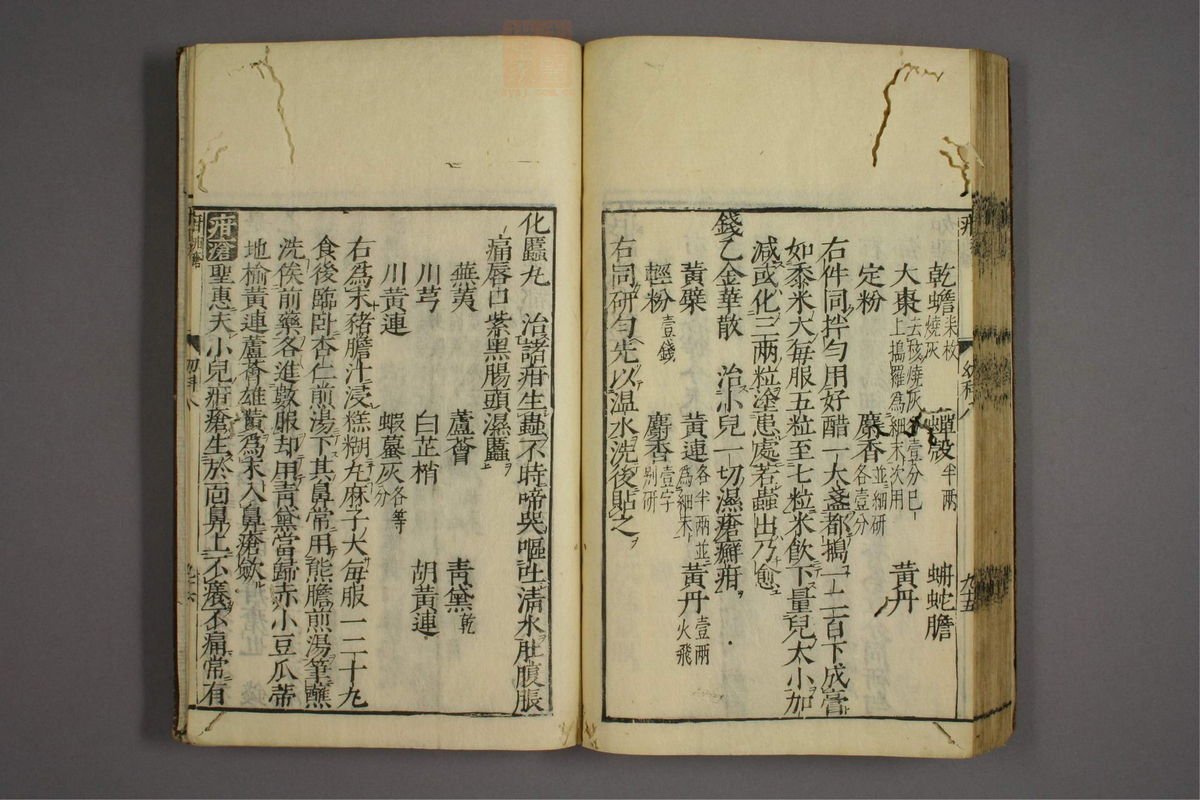 乾蟾柒枚燒灰 蟬殼半兩 蚺蛇膽
大棗去核燒灰上搗羅爲細末次用 壹分巳
定粉 麝香並細研各壹分 黃丹
右件同拌勻用好醋一大盞都搗一二百下成膏
如黍米大每服五粒至七粒米飲下量兒大小加
減或化三兩粒塗患處若蟲出乃愈
錢乙金華散 治小兒一切濕瘡癬疳
黃蘗 黃連各半兩並爲細末 黃丹壹兩火飛
輕粉壹錢 麝香壹字別研
右同研勻先以温水洗後貼之
九十五
化䘌丸 治諸疳生蟲不時啼哭嘔吐清水肚腹脹
痛唇口紫黑腸頭濕䘌
蕪荑 蘆薈 青黛乾
川芎 白芷梢 胡黃連
川黃連 蝦蟇灰各等分
右爲末豬膽汁浸糕糊丸麻子大每服一二十丸
食後臨卧杏仁煎湯下其鼻常用熊膽煎湯筆蘸
洗俟前藥各進數服却用青黛當歸赤小豆瓜蒂
地榆黃連蘆薈雄黃爲末入鼻瘡歛
疳瘡 聖惠夫小兒疳瘡生於面鼻上不癢不痛常有